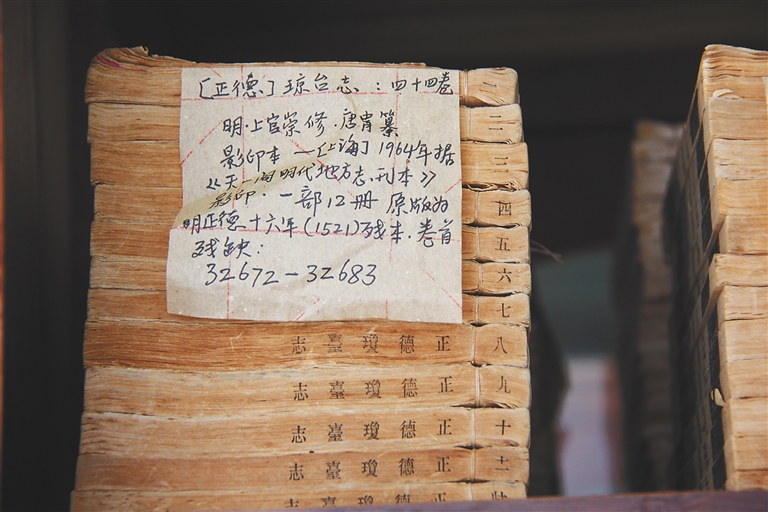 [正德]琼台志:四十四卷
明·上官崇修·唐胄纂
影印本—[上海]1964年据
《天一阁明代地方志刊本》
影印·一部12册 原版为
明正德十六年(1521)残本·卷首
残缺:
32672-32683
一
二
三
四
五
六
七
正德瓊臺志 八
正德瓊臺志 九
正德瓊臺志 十
正德瓊臺志 十一
正德瓊臺志